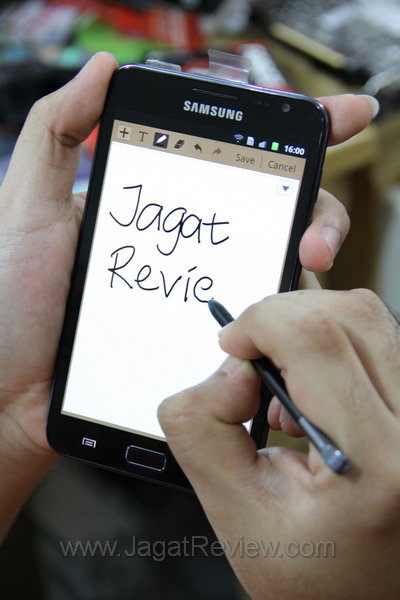 SAMSUNG
16:00
T Save Cancel
Jagat
Revie
www.JagatReview.com